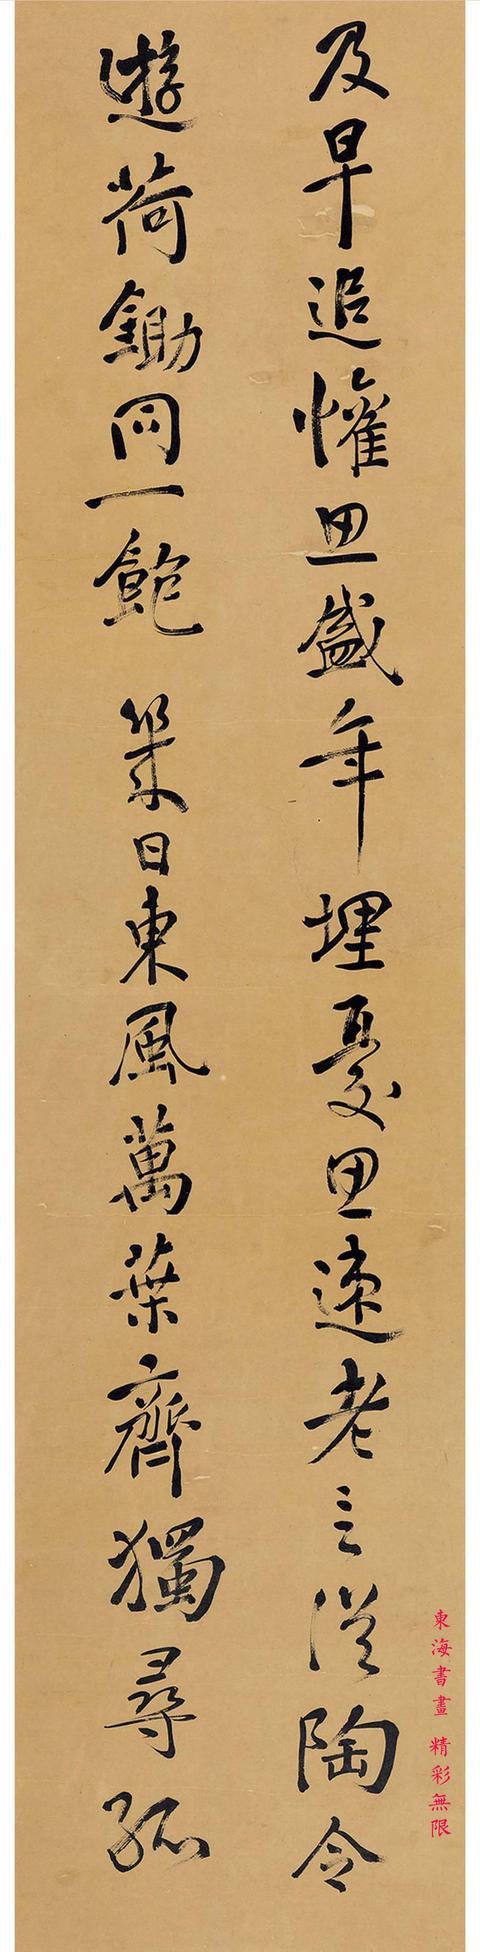 及早追懽思盛年埋憂思速老言從陶令
遊荷鋤同一飽 策日東風萬葉齊獨尋孤
東海書畫 精彩無限